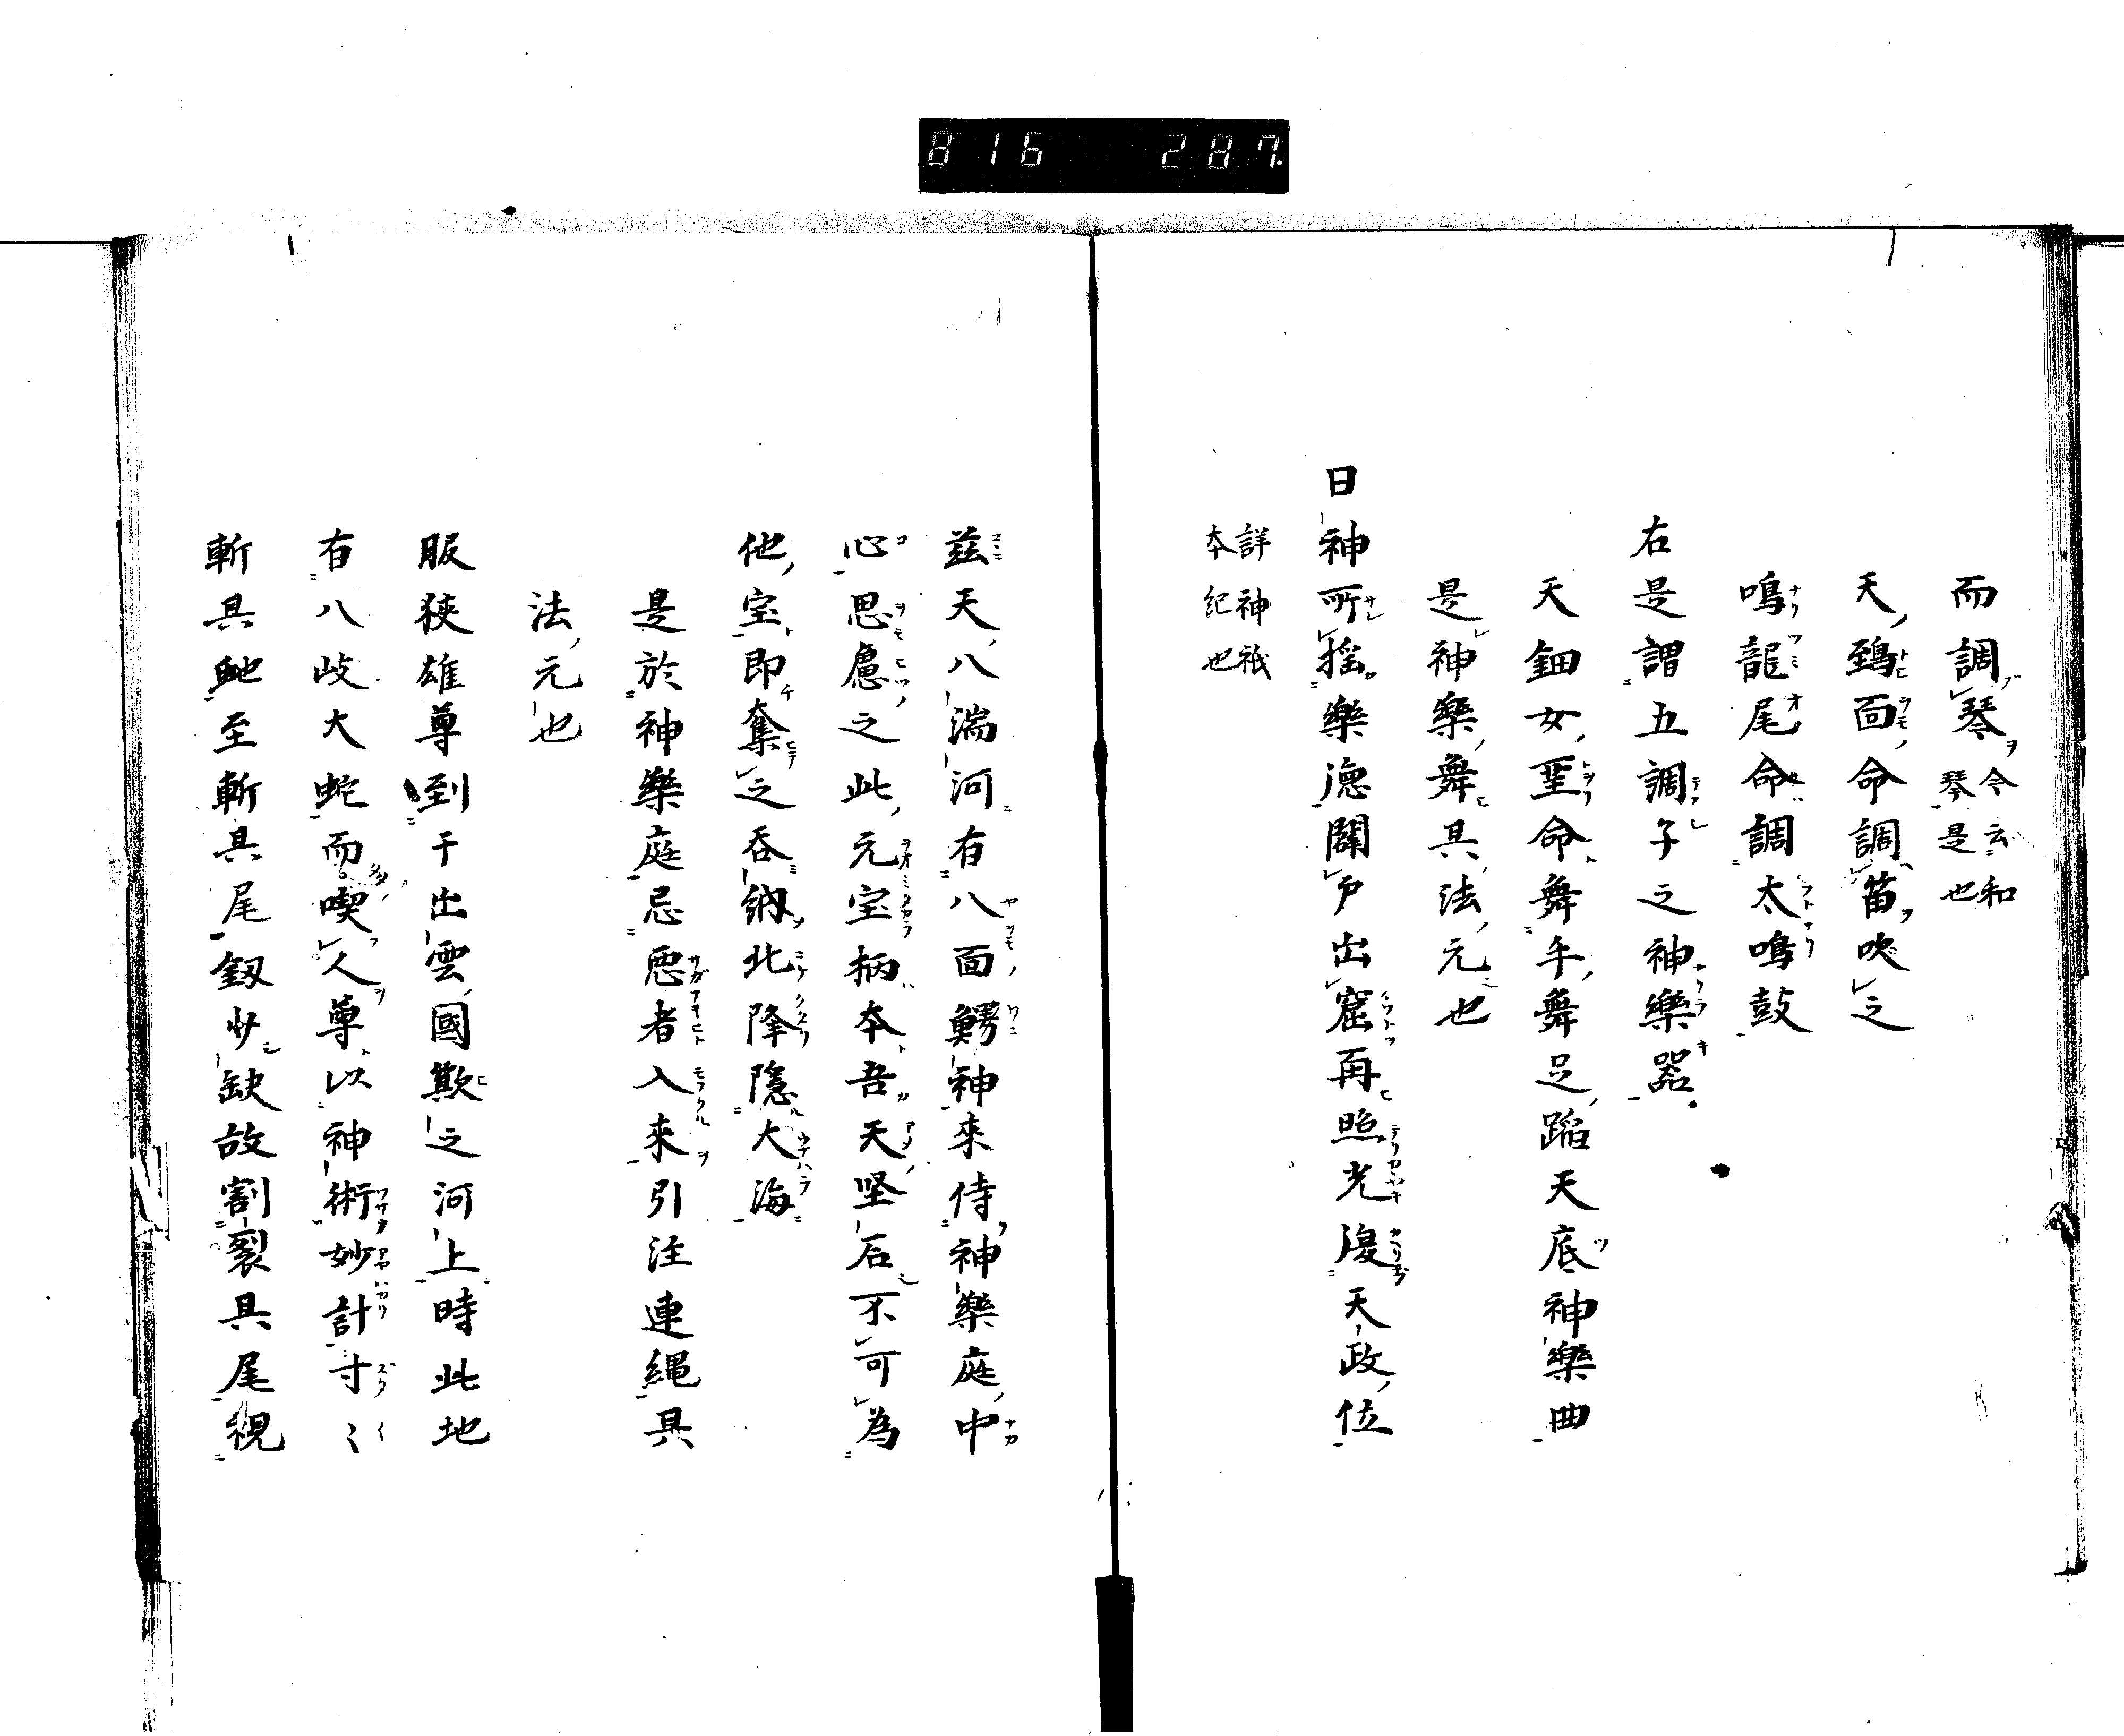 816 287.
而調琴今云和琴是也
天鵄面命調笛吹之
鳴龍尾命調太鳴鼓
右是謂五調子之神樂器
天鈿女垩命舞手舞足蹈天底神樂曲
是神樂舞其法元也
日神所揺樂徳闢戸出窟再照光復天政位
詳神祇本紀也
茲天八湍河有八面鰐神来侍神樂庭中
心思慮之此元宝柄本吾天坚石不可為
他宝即奪之呑納北降隠大海
是於神樂庭忌悪者入来引注連縄其
法元也
服狭雄尊到于出雲國欺之河上時此地
有八岐大蛇而喫人尊以神術妙計寸〻
斬其虵至斬其尾釼少缺故割裂其尾視